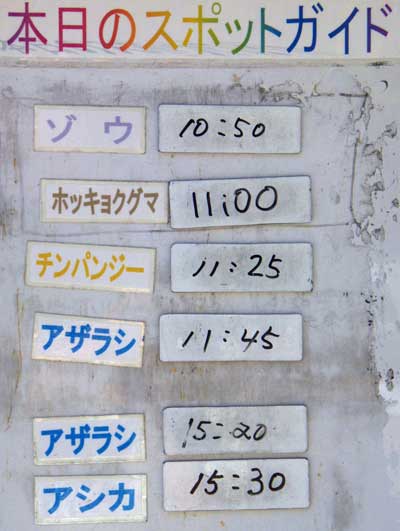 本日のスポットガイド
ゾウ 10:50
ホッキョクグマ 11:00
チンパンジー 11:25
アザラシ 11:45
アザラシ 15:20
アシカ 15:30